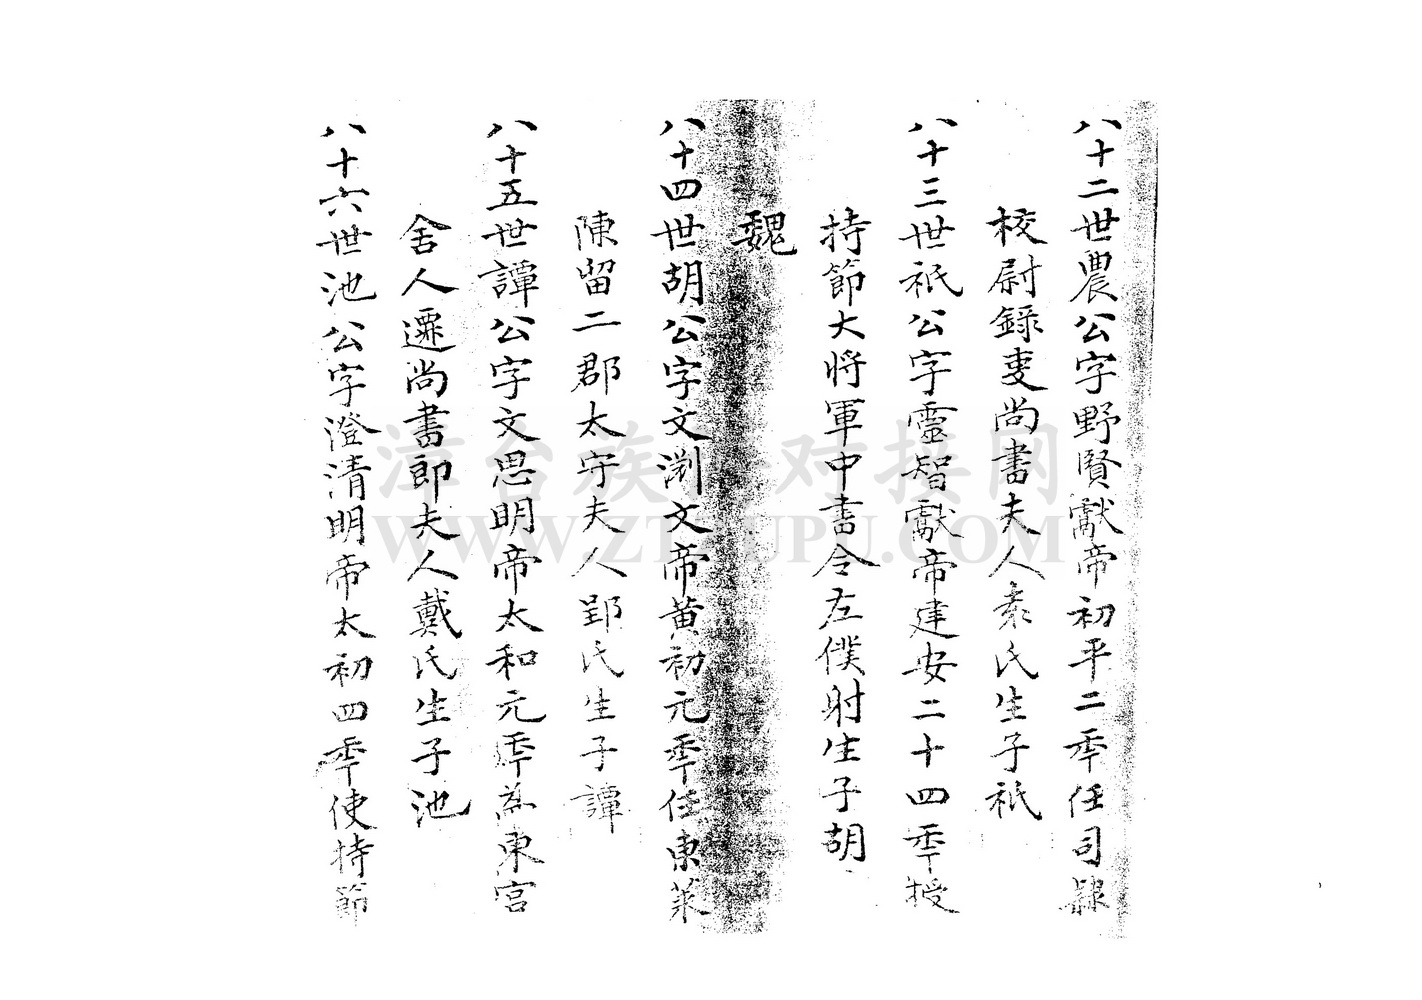 八十二世農公字野賢獻帝初平二年任司隸
校尉錄吏尚書夫人袁氏生子祇
八十三世祇公字靈智獻帝建安二十四年授
持節大將軍中書令左僕射生子胡
魏
八十四世胡公字文渕文帝黃初元年任東萊
陳留二郡太守夫人郢氏生子譚
八十五世譚公字文思明帝太和元年為東宮
舍人遷尚書郎夫人戴氏生子池
八十六世池公字澄清明帝太初四年使持節
漳台族谱对接网
WWW.ZTZUPU.COM